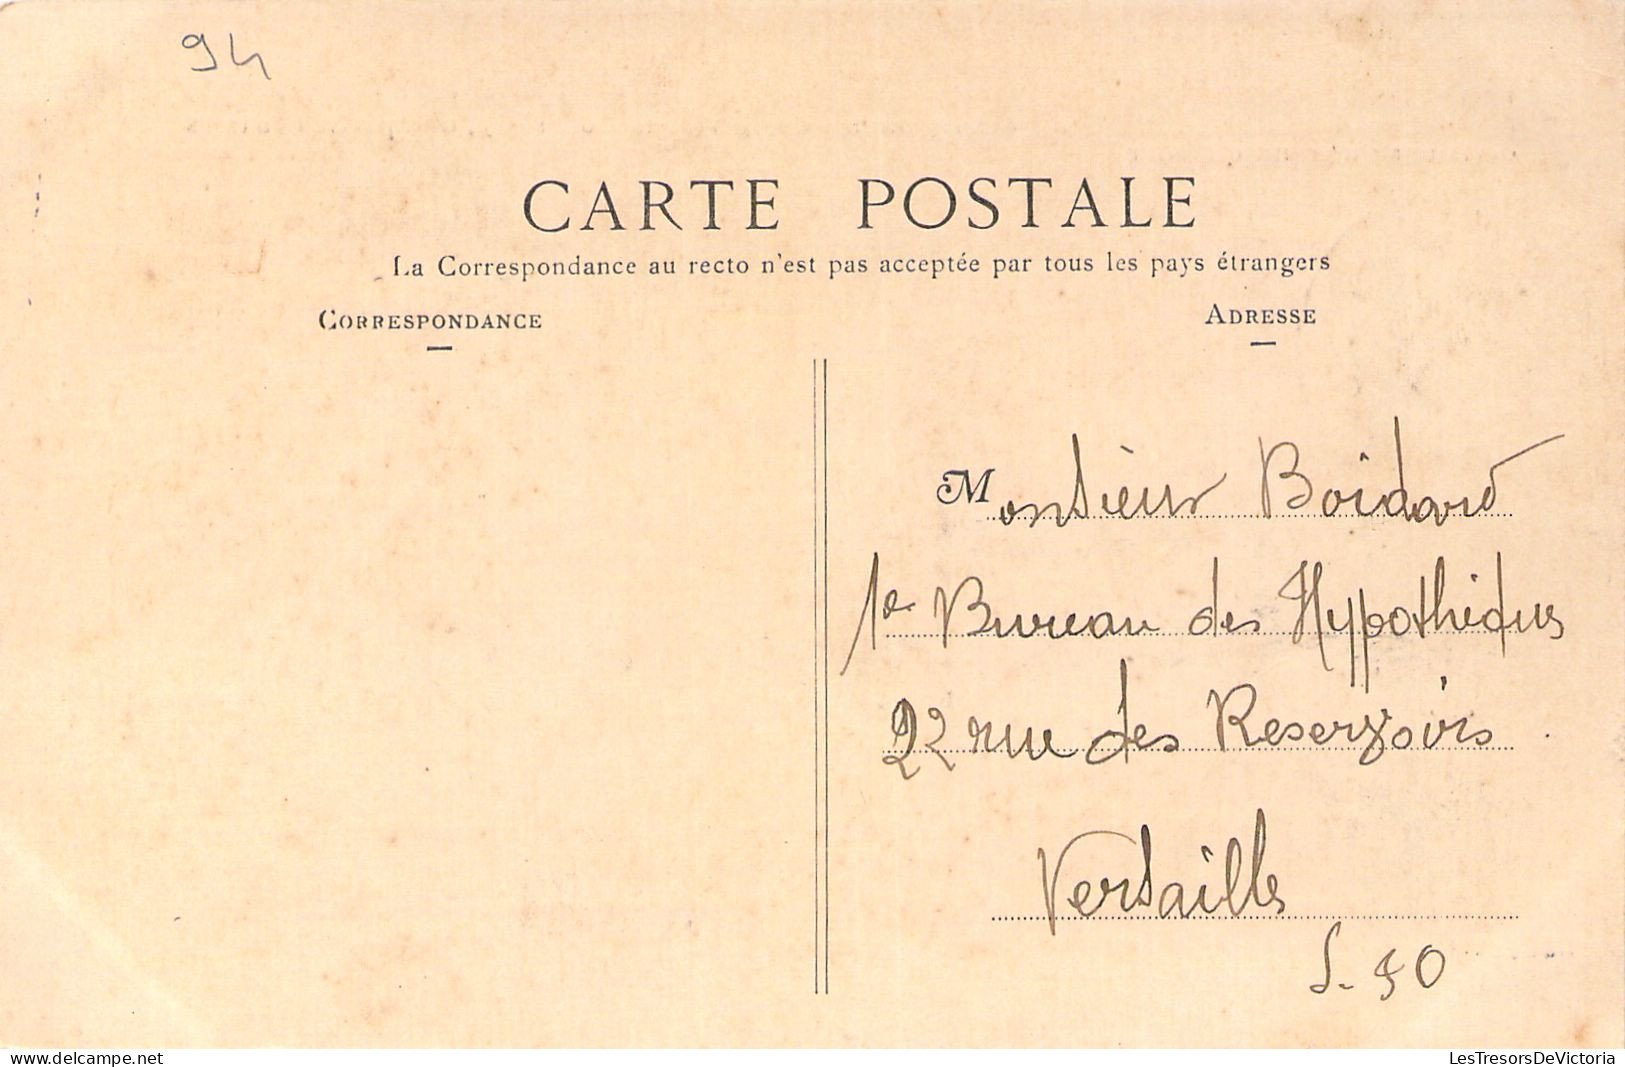 94
CARTE POSTALE
La Correspondance au recto n'est pas acceptée par tous les pays étrangers
CORRESPONDANCE
ADRESSE
Monsieur Boidard
1e Bureau des Hypothèques
22 rue des Reservoirs
Versailles
S. &O
www.delcampe.net
LesTresorsDeVictoria